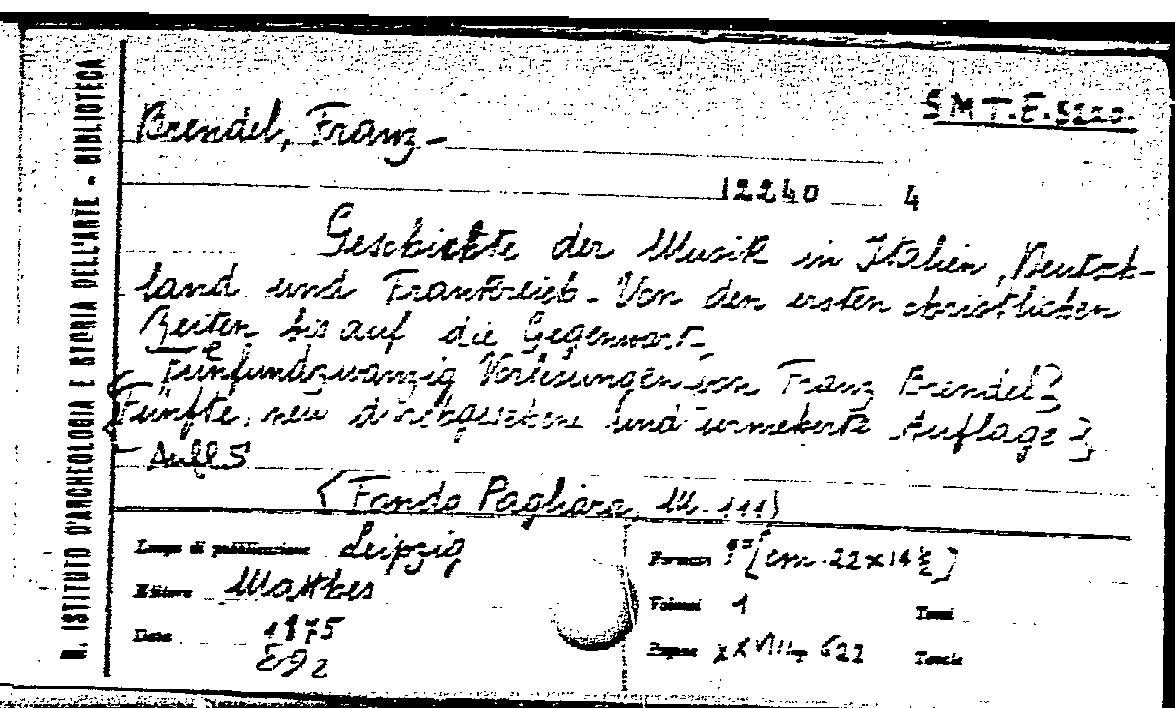 R. ISTITUTO D'ARCHEOLOGIA E STORIA DELL'ARTE - BIBLIOTECA
S M T.E.5220.
Brendel, Franz -
12240 4
Geschichte der Musik in Italien, Deutsch-
land und Frankreich - Von den ersten christlichen
Zeiten bis auf die Gegenwart -
Fünfundzwanzig Vorlesungen von Franz Brendel]
[Fünfte, neu durchgesehene und vermeherte Auflage],
- Aufl 5
(Fondo Pagliara, M. 111)
Luogo di pubblicazione Leipzig
Editore Matthes
Data 1875
Formato 8° [cm. 22x14½]
Volumi 1 Tomi
Pagine XXVIII, 622 Tavole